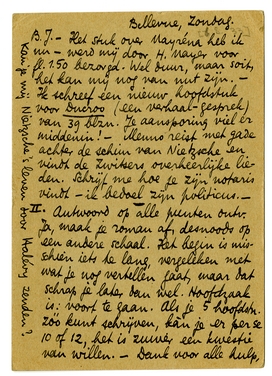 Bellevue, Zondag.
B.J. – Het stuk over Mayréna heb ik
nu – werd mij door H. Mayer voor
fl. 1.50 bezorgd. Wel duur, maar soit,
het kan mij nog van nut zijn. –
Ik schreef een nieuw hoofdstuk
voor Ducroo (een verhaal-gesprek)
van 39 blzn. Je aansporing viel er
middenin! – Menno reist met gade
achter de schim van Nietzsche en
vindt de Zwitsers overheerlijke lie-
den. Schrijf me hoe je zijn notaris
vindt – ik bedoel zijn politicus. –
II. Antwoord op alle punten ontv.
Ja, maak je roman af, desnoods op
een andere schaal. Het begin is mis-
schien iets te lang, vergeleken met
wat je nog vertellen gaat, maar dat
schrap je later dan wel. Hoofdzaak
is: voort te gaan. Als je 5 hoofdstn.
zóó kunt schrijven, kan je er per se
10 of 12, het is zuiver een kwestie
van willen. – Dank voor alle hulp,
Kan je mij Nietzsche's leven door Halévy zenden?